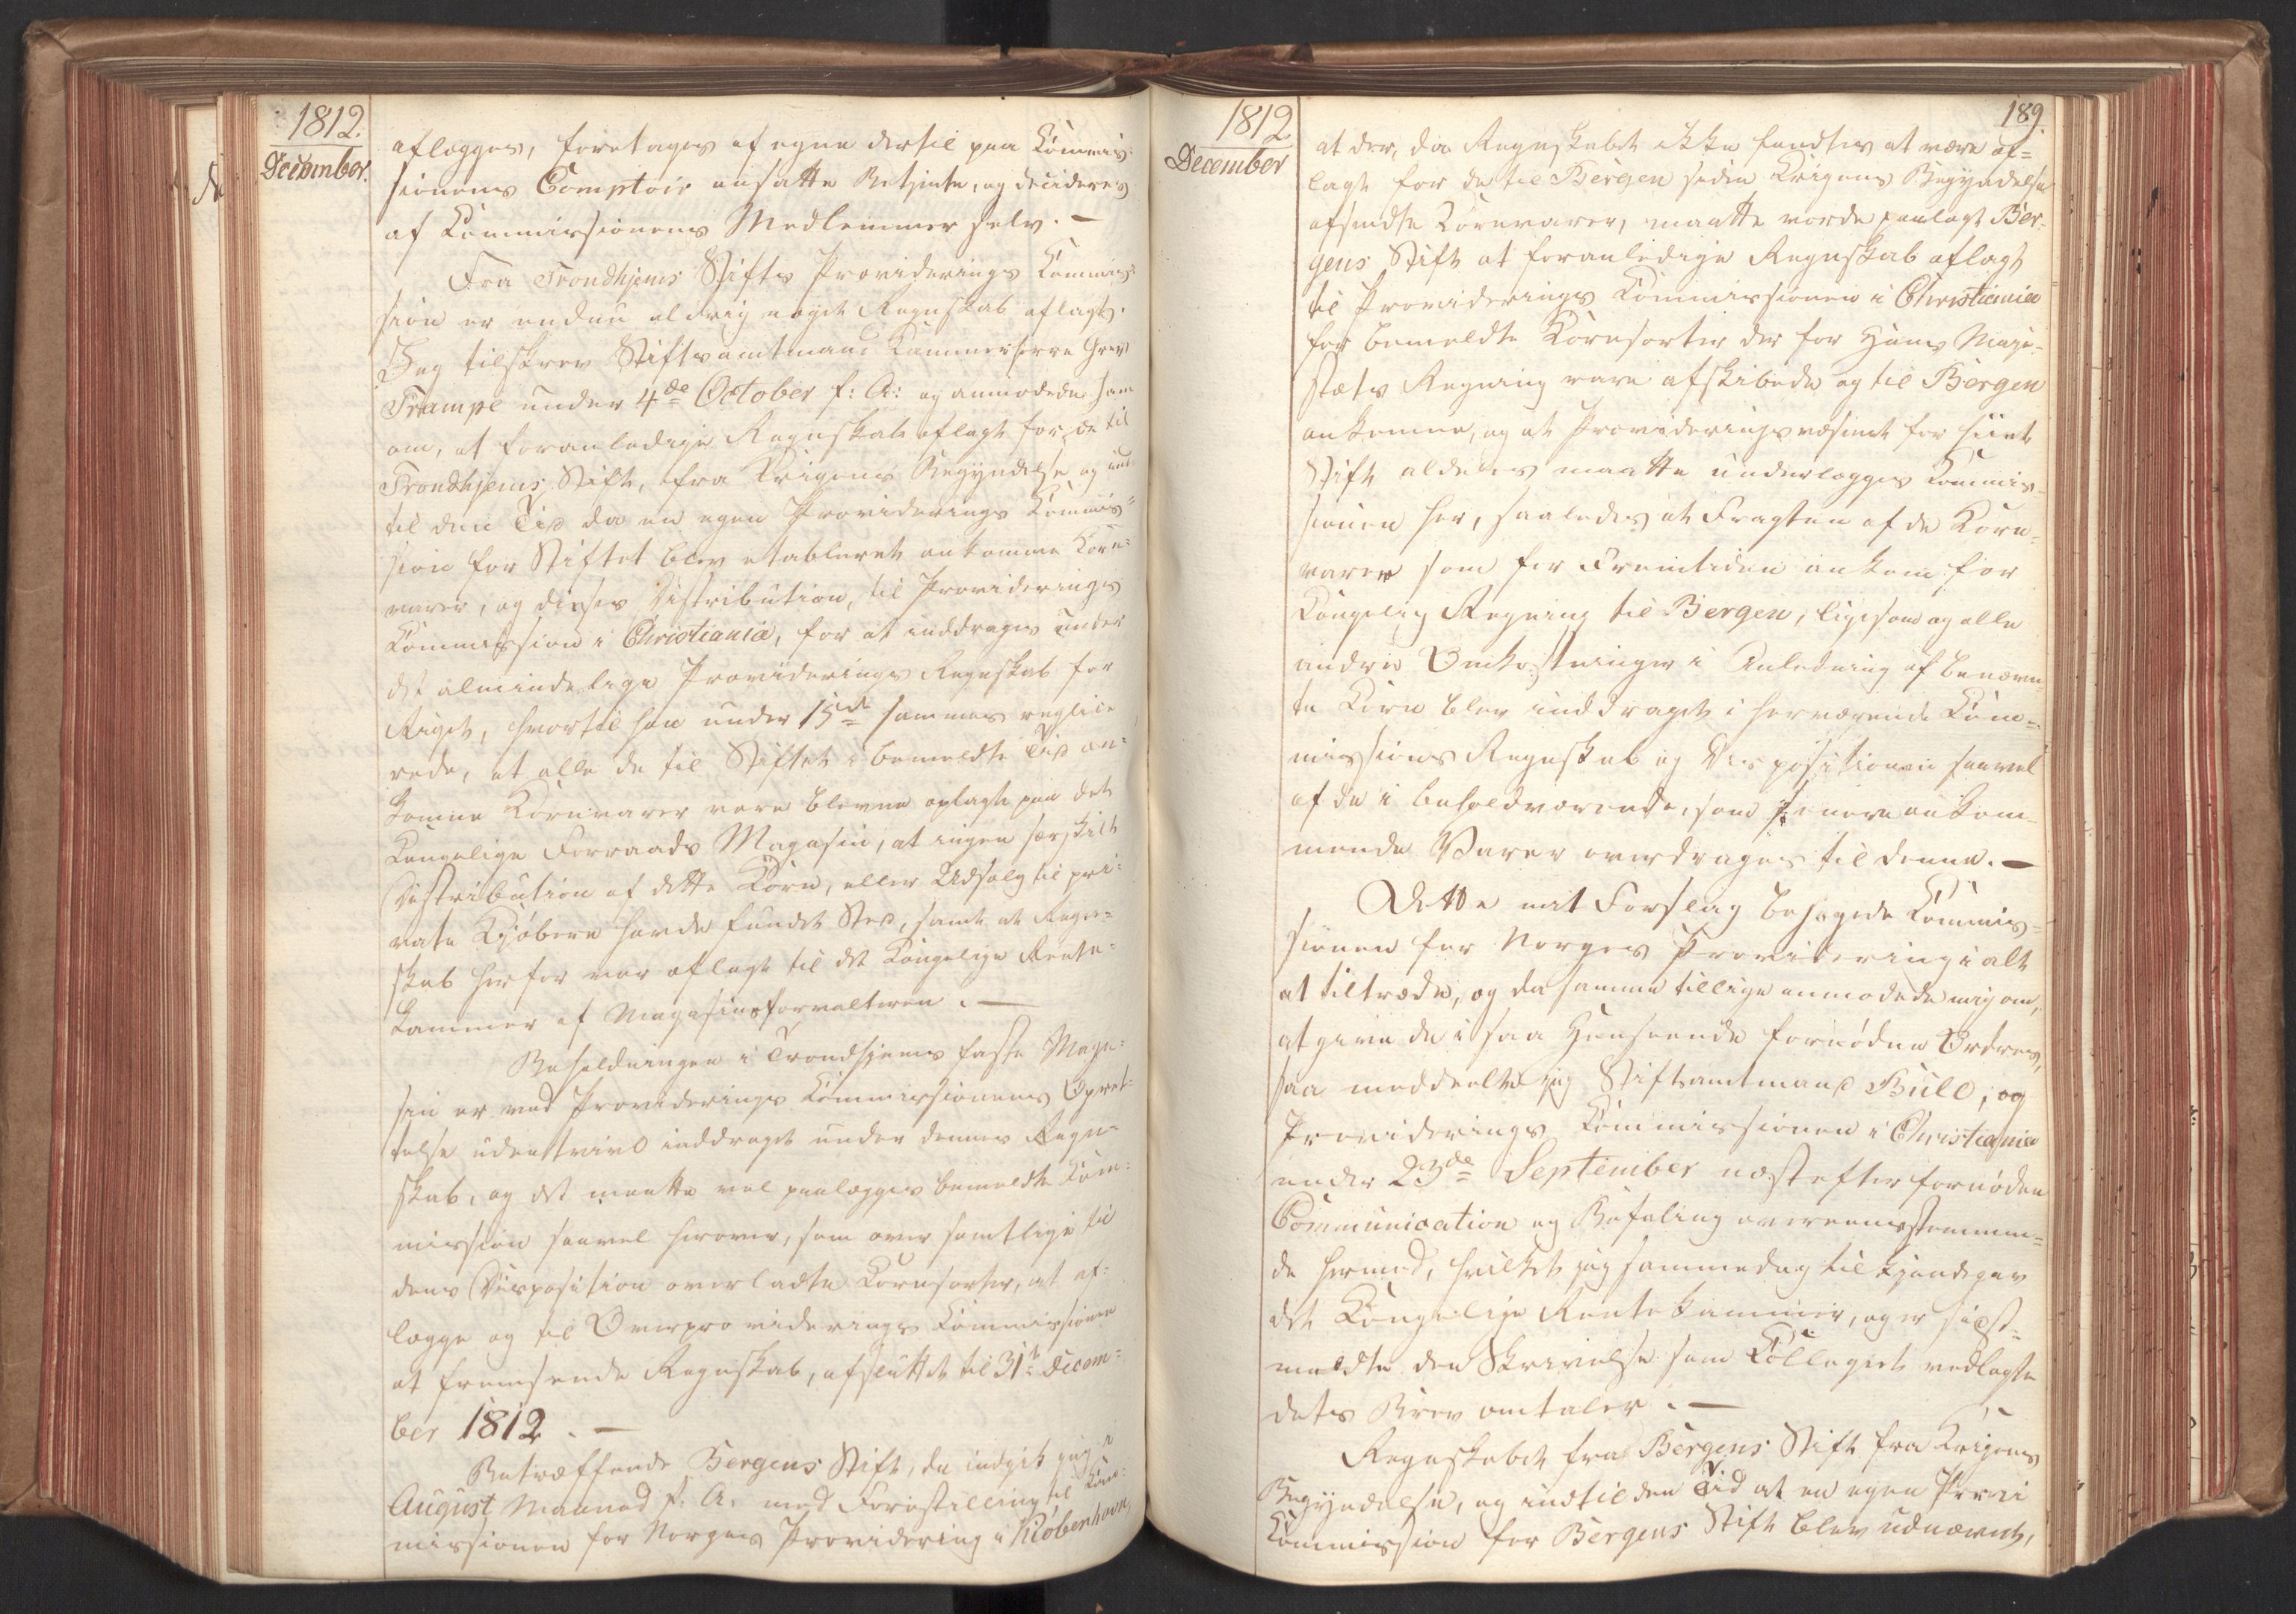 1812.
December.
aflægges, foretages af egne dertil paa Kommis-
sionens Comptoir ansatte Betjente, og decideres
af Kommissionens Medlemmer selv. —
Fra Trondhjems Stifts Providerings Kommis-
sion er endnu aldrig noget Regnskab aflagt.
Jeg tilskrev Stiftsamtmand Kammerherre Grev
Trampe under 4de October f: A: og anmodede ham
om, at foranledige Regnskab aflagt for de til
Trondhjems Stift, fra Krigens Begyndelse og ind-
til den Tid da en egen Providerings Kommis-
sion for Stiftet blev etableret ankomne Korn-
varer, og disses Distribution, til Providerings
Kommission i Christiania, for at inddrages under
det almindelige Providerings Regnskab for
Riget, hvortil han under 15de sammes replice-
rede, at alle de til Stiftet i bemeldte Tid an-
komne Kornvarer vare blevne oplagte paa det
Kongelige Forraads Magasin, at ingen særskilt
Distribution af dette Korn, eller Udsalg til pri-
vate Kjøbere havde fundet Sted, samt at Regn-
skab herfor var aflagt til det Kongelige Rente-
kammer af Magasinsforvalteren. —
Beholdningen i Trondhjems faste Maga-
sin er ved Providerings Kommissionens Opret-
telse udentvivl inddraget under dennes Regn-
skab, og det maatte vel paalægges bemeldte Kom-
mission saavel herover, som over samtlige til
dens Disposition overladte Kornsorter, at af-
lægge og til Overproviderings Kommissionen
at fremsende Regnskab, afsluttet til 31te Decem-
ber 1812. —
Betræffende Bergens Stift, da indgik jeg i
August Maaned f: A. med Forestilling til Kom-
missionen for Norges Providering i Kiöbenhavn,
1812
December
189.
at der, da Regnskabet ikke fandtes at være af-
lagt for de til Bergen siden Krigens Begyndelse
afsendte Kornvarer, maatte vorde paalagt Ber-
gens Stift at foranledige Regnskab aflagt
til Providerings Kommissionen i Christiania
for bemeldte Kornsorter der for Hans Maje-
stæts Regning vare afskibede og til Bergen
ankomne, og at Provideringsvæsenet for hiint
Stift aldeles maatte underlægges Kommis-
sionen her, saaledes at Fragten af de Korn-
varer som for Fremtiden ankom for
Kongelig Regning til Bergen, ligesom og alle
andre Omkostninger i Anledning af benævn-
te Korn blev inddraget i herværende Kom-
missions Regnskab og Dispositionen saavel
af de i behold værende, som senere ankom-
mende Varer overdrages til denne. —
Dette mit Forslag behagede Kommis-
sionen for Norges Providering i alt
at tiltræde, og da samme tillige anmodede mig om,
at give de i saa Henseende fornødne Ordres,
saa meddeelte jeg Stiftamtmand Bull, og
Providerings Kommissionen i Christiania
under 23de September næstefter fornøden
Communication og Befaling overeensstemmen-
de hermed, hvilket jeg sammedag tilkjendegav
det Kongelige Rentekammer, og er sidst-
meldte den Skrivelse som Collegiet vedlagte
dets Brev omtaler. —
Regnskabet fra Bergens Stift fra Krigens
Begyndelse, og indtil den Tid at en egen Provi
Kommission for Bergens Stift blev udnævnt,